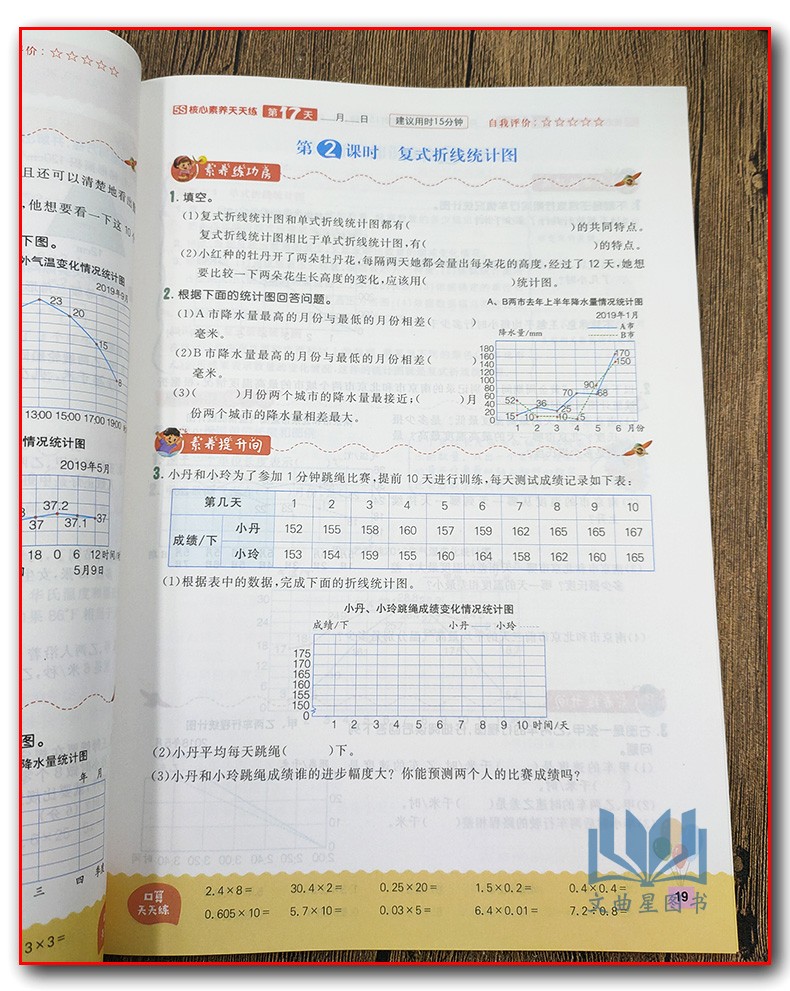 价:☆☆☆☆☆
且还可以清楚地看出
,他想要看一下这10个
下图。
外气温变化情况统计图
2019年9月
23
20
15
8
13:00 15:00 17:00 19:00
情况统计图
2019年5月
37.2
37 37.1 37
18 0 6 12 时间/时
5月9日
图。
降水量统计图
年 月
三 四 季度
3×3=
5S核心素养天天练 第17天 __月__日 建议用时15分钟 自我评价:☆☆☆☆☆
第2课时 复式折线统计图
素养练功房
1. 填空。
(1)复式折线统计图和单式折线统计图都有( )的共同特点。
复式折线统计图相比于单式折线统计图,有( )的特点。
(2)小红种的牡丹开了两朵牡丹花,每隔两天她都会量出每朵花的高度,经过了12天,她想
要比较一下两朵花生长高度的变化,应该用( )统计图。
2. 根据下面的统计图回答问题。
(1)A市降水量最高的月份与最低的月份相差( )
毫米。
(2)B市降水量最高的月份与最低的月份相差( )
毫米。
(3)( )月份两个城市的降水量最接近;( )月
份两个城市的降水量相差最大。
A、B两市去年上半年降水量情况统计图
2019年1月
A市
降水量/mm B市
180
160
140
120
100
80
60
40
20
0
52 36 70 90 170
15 10 25 10 5 68 150
1 2 3 4 5 6 月份
素养提升间
3. 小丹和小玲为了参加1分钟跳绳比赛,提前10天进行训练,每天测试成绩记录如下表:
第几天 1 2 3 4 5 6 7 8 9 10
成绩/下 小丹 152 155 158 160 157 159 162 165 165 167
小玲 153 154 159 155 160 164 158 162 160 165
(1)根据表中的数据,完成下面的折线统计图。
小丹、小玲跳绳成绩变化情况统计图
成绩/下 小丹—— 小玲······
175
170
165
160
155
150
0
1 2 3 4 5 6 7 8 9 10 时间/天
(2)小丹平均每天跳绳( )下。
(3)小丹和小玲跳绳成绩谁的进步幅度大?你能预测两个人的比赛成绩吗?
口算
天天练
2.4×8= 30.4×2= 0.25×20= 1.5×0.2= 0.4×0.4=
0.605×10= 5.7×10= 0.03×5= 6.4×0.01= 7.2÷0.8=
19
文曲星图书